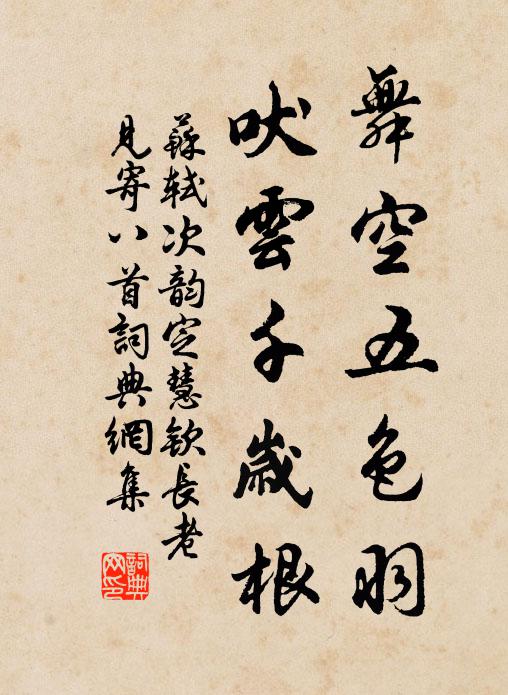 舞空五色羽
吠雲千歲根
蘇軾次韵定慧欽長老
見寄八首詞典網集
詞典
网印